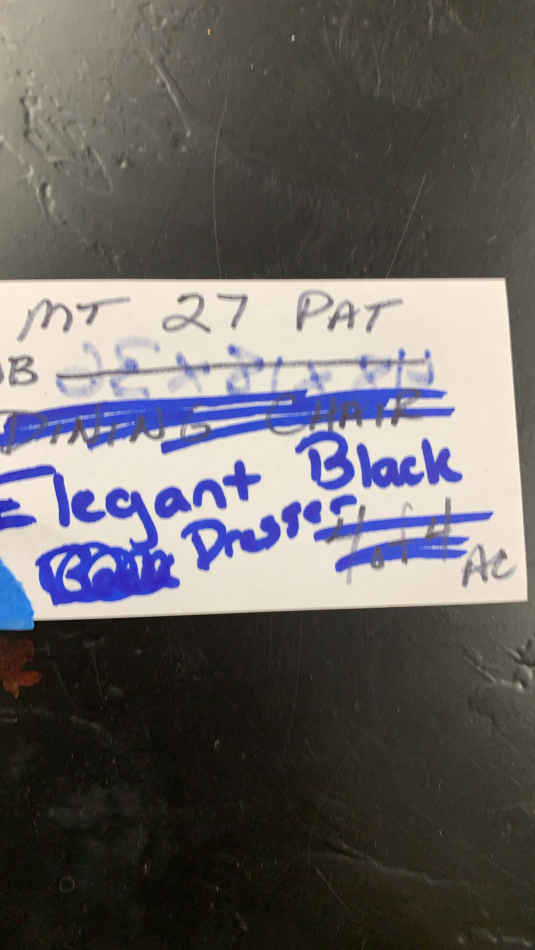 MT 27 PAT
OB
DINING CHAIR
Elegant Black
Dresser
AC